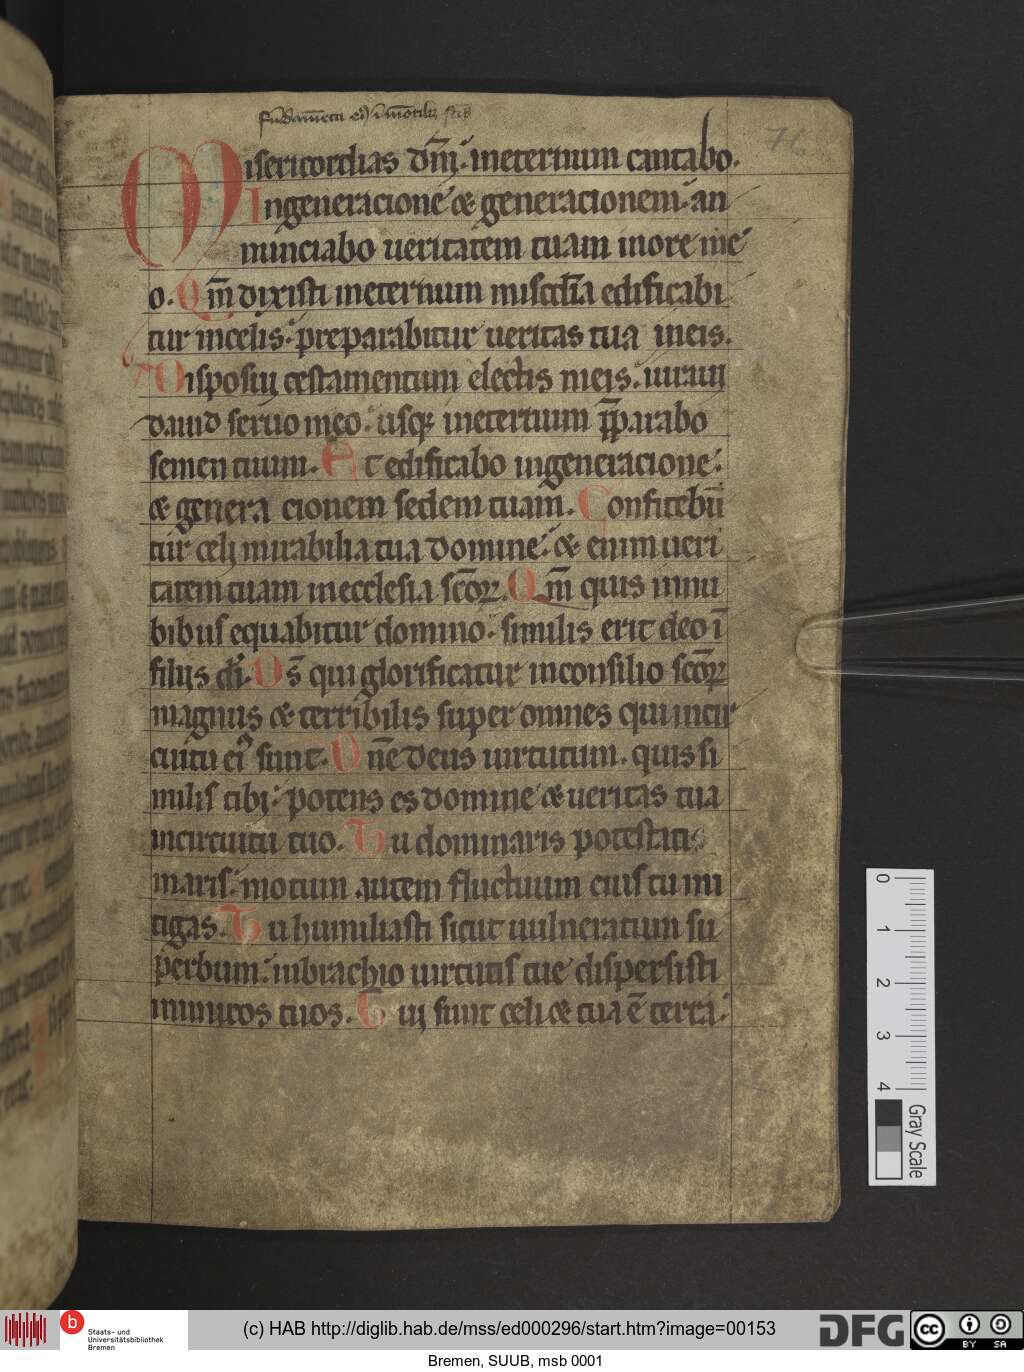 Fundamenta ei9 i mōtib9 scīs
76
Misericordias dm̄. ineternum cantabo.
Ingeneracione & generacionem. an
nunciabo ueritatem tuam inore me
o. Qm̄ dixisti ineternum miscdīa edificabi
tur incelis. preparabitur ueritas tua ineis.
Disposui testamentum electis meis. iuraui
dauid seruo meo. usq; ineternum p̄parabo
semen tuum. Et edificabo ingeneracione.
& genera cionem sedem tuam. Confitebū
tur celi mirabilia tua domine. & enim ueri
tatem tuam inecclesia scōꝝ. Qm̄ quis innu
bibus equabitur domino. similis erit deo ī
filiis di. Ds̄ qui glorificatur inconsilio scōꝝ
magnus & terribilis super omnes qui incir
cuitu ei9 sunt. Dn̄e deus uirtutum. quis si
milis tibi. potens es domine & ueritas tua
incircuitu tuo. Tu dominaris potestatis
maris. motum autem fluctuum eius tu mi
tigas. Tu humiliasti sicut uulneratum su
perbum. inbrachio uirtutis tue dispersisti
inimicos tuos. Tui sunt celi & tua ē terra.
0
1
2
3
4
Gray Scale
b
Staats- und
Universitätsbibliothek
Bremen
(c) HAB http://diglib.hab.de/mss/ed000296/start.htm?image=00153
DFG
cc
BY SA
Bremen, SUUB, msb 0001